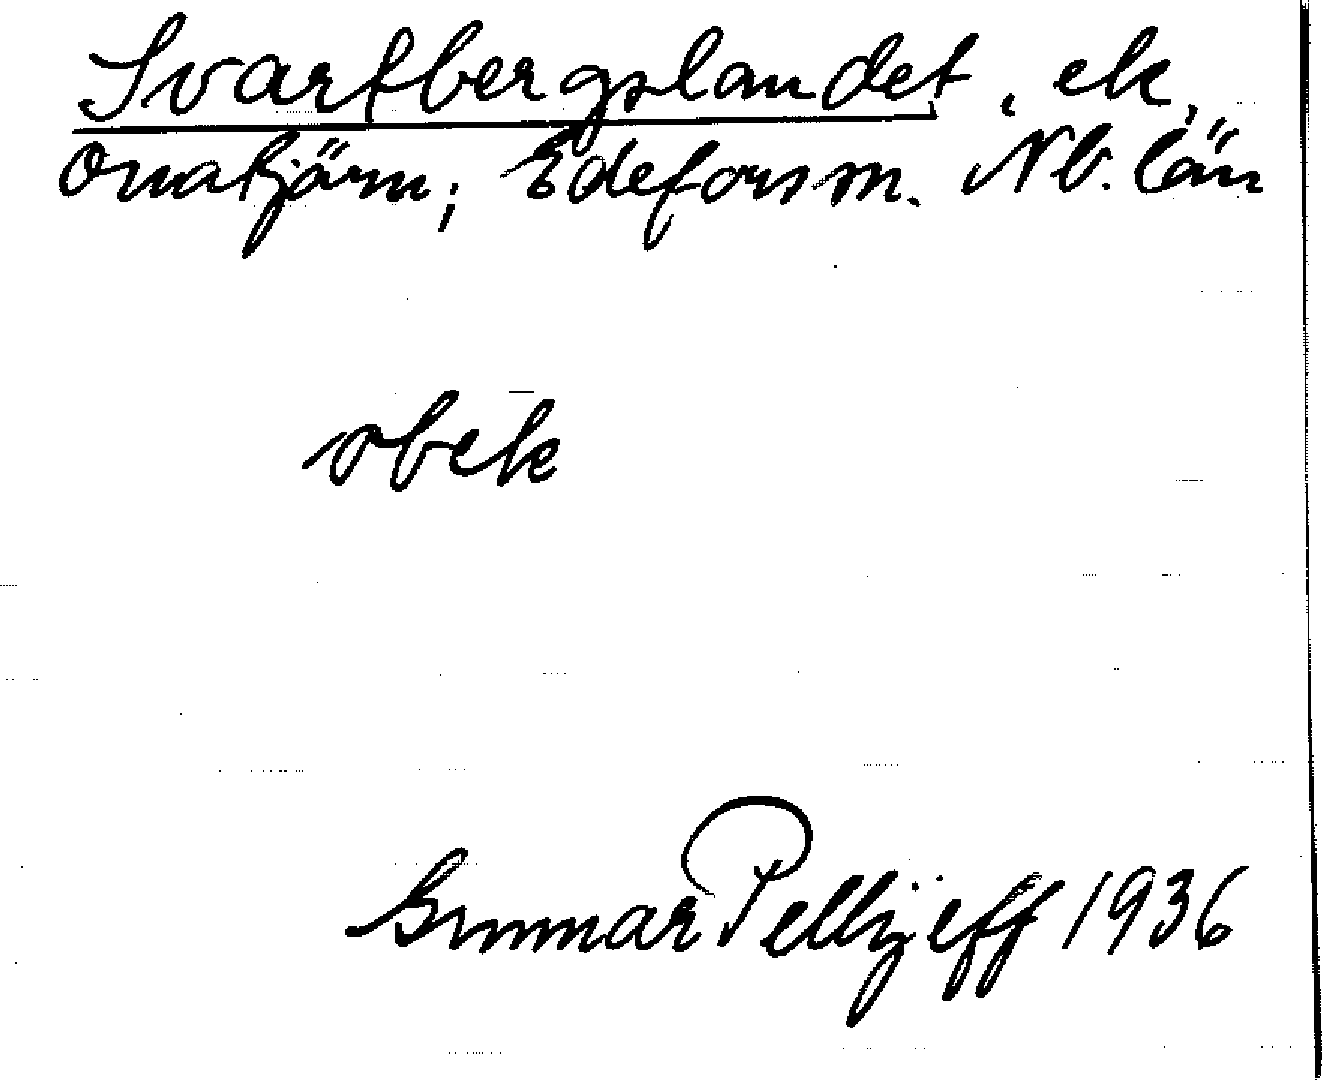 Svartbergslandet, ek,
Onatjärn; Edefors sn. Nb. län
obek
Gunnar Pellijeff 1936